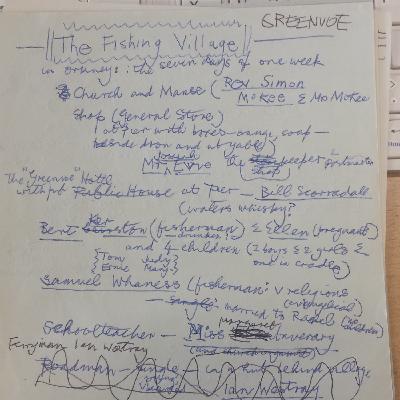 GREENVOE
The Fishing Village
in Orkney: the seven days of one week
Church and Manse (Rev. Simon
McKee & Mrs McKee
Shop (General Store)
at Pier with boxes - orange, soap —
Mr Joseph Evie the shopkeeper &
The "Greenvoe" Hotel
with pt Public House at Pier — Bill Scorradall
(waters whisky?
Bert Kerston (fisherman) & Ellen (pregnant)
drunken
and 4 children (2 boys & 2 girls &
Tom Judy one in cradle)
Ernie Mary
Samuel Whaness (fisherman: v religious
(evangelical)
— single married to Rachel (no children)
Schoolteacher — Miss Margaret Inverary
(and church organist)
Ferryman Ian Westray
Roadman — single — behind village
Ian Westray